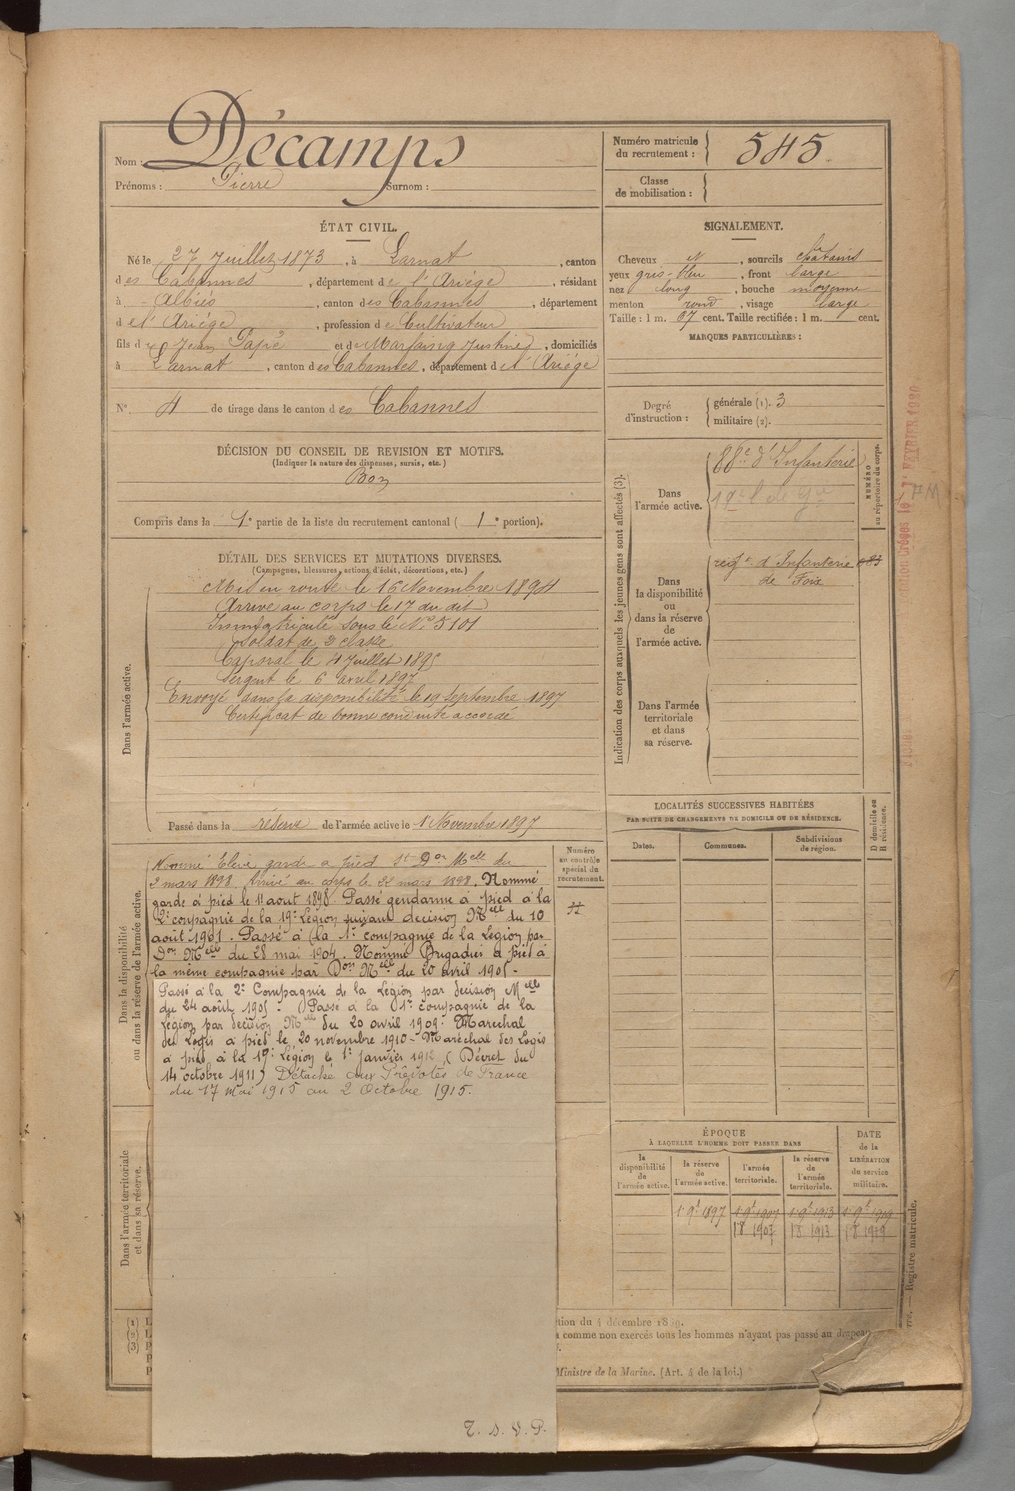 Nom : Décamps
Prénoms : Pierre Surnom :
Numéro matricule du recrutement : 545
Classe de mobilisation :
ÉTAT CIVIL.
Né le 27 Juillet 1873, à Larnat, canton
des Cabannes, département de l'Ariège, résidant
à Albiès, canton des Cabannes, département
de l'Ariège, profession de Cultivateur
fils de Jean Papé et de Marfaing Justine, domiciliés
à Larnat, canton des Cabannes, département de l'Ariège
N° 4 de tirage dans le canton des Cabannes
SIGNALEMENT.
Cheveux et, sourcils châtains
yeux gris-bleu, front large
nez long, bouche moyenne
menton rond, visage large
Taille : 1 m. 67 cent. Taille rectifiée : 1 m. cent.
MARQUES PARTICULIÈRES :
Degré d'instruction : générale (1). 3
militaire (2).
DÉCISION DU CONSEIL DE REVISION ET MOTIFS.
(Indiquer la nature des dispenses, sursis, etc.)
Bon
Compris dans la 1e partie de la liste du recrutement cantonal (1e portion).
DÉTAIL DES SERVICES ET MUTATIONS DIVERSES.
(Campagnes, blessures, actions d'éclat, décorations, etc.)
Dans l'armée active.
Mis en route le 16 Novembre 1894
Arrivé au corps le 17 du dit
Immatriculé sous le N° 5101
Soldat de 2 classe
Caporal le 4 Juillet 1895
Sergent le 6 avril 1897
Envoyé dans la disponibilité le 19 Septembre 1897
Certificat de bonne conduite accordé
Passé dans la réserve de l'armée active le 1 Novembre 1897
Dans la disponibilité ou dans la réserve de l'armée active.
Nommé Elève garde à pied St Don Melle du
2 mars 1898. Arrivé au corps le 22 mars 1898. Nommé
garde à pied le 1r août 1898. Passé gendarme à pied à la
2e compagnie de la 19e Légion suivant décision Melle du 10
août 1901. Passé à la 1e compagnie de la Légion par
Don Melle du 28 mai 1904. Nommé Brigadier à pied à
la même compagnie par Don Melle du 20 avril 1905 -
Passé à la 2e Compagnie de la Légion par décision Melle
du 24 août 1905. Passé à la 1e compagnie de la
légion par décision Melle du 20 avril 1909. Maréchal
des Logis à pied le 20 novembre 1910 - Maréchal des Logis
à pied à la 19e Légion le 1r janvier 1912 (Décret du
14 octobre 1911) Détaché aux Prévôtés de France
du 17 Mai 1915 au 2 Octobre 1915.
T. S. V. P.
Dans l'armée territoriale et dans sa réserve.
Numéro au contrôle spécial du recrutement.
Indication des corps auxquels les jeunes gens sont affectés (3).
Dans l'armée active.
88e d'Infanterie
19e l de Gie
NUMÉRO au répertoire du corps.
Dans la disponibilité ou dans la réserve de l'armée active.
regt d'Infanterie
de Foix
Dans l'armée territoriale et dans sa réserve.
LOCALITÉS SUCCESSIVES HABITÉES
PAR SUITE DE CHANGEMENTS DE DOMICILE OU DE RÉSIDENCE.
Dates. Communes. Subdivisions de région.
D domicile ou R résidence.
ÉPOQUE
À LAQUELLE L'HOMME DOIT PASSER DANS
la disponibilité de l'armée active.
la réserve de l'armée active.
l'armée territoriale.
la réserve de l'armée territoriale.
DATE de la LIBÉRATION du service militaire.
1 9e 1897 1 9e 1907 1 9e 1913 1 9e 1919
1 8 1907 1 8 1913 1 8 1919
(1)
(2)
(3)
tion du 4 décembre 1889.
comme non exercés tous les hommes n'ayant pas passé au drapeau
Ministre de la Marine. (Art. 4 de la loi.)
Registre matricule.